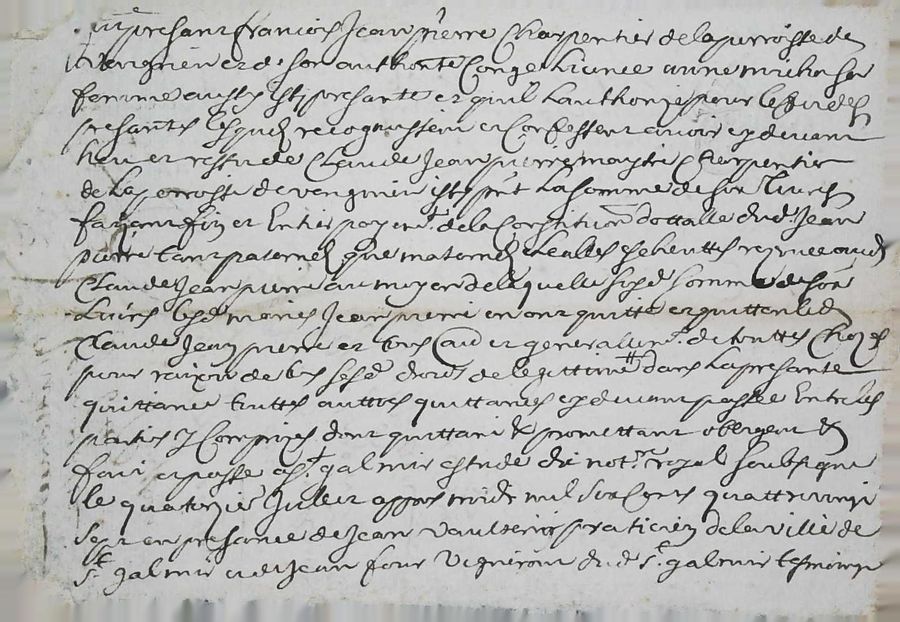 presant francois Jean pierre Charpentier de la parroisse de
et de son authorite Conge Licence anne sa
femme aussy Icy presante et quil Lauthorize pour leffaict des
presantes lesquels recognoissent et Confessent avoir cy devant
heu et receu de Claude Jean pierre maystre Charpentier
de la parroisse de Icy pnt La somme de Livres
faizant fin et Entier payemt. de la Constitution dottalle dud. Jean
pierre tant paternel que maternel
Claude Jean pierre au moyen de laquelle susd. somme de
Livres lesd. mariés Jean pierre en ont quitté et quittent led.
Claude Jean pierre et tous et generalemt. de touttes Chozes
pour raizon de tous sesd. droits de legittime dans La presante
quittance touttes auttres quittances cy devant passée Entre les
parties y Comprizes dont quittant & promettant obligent &
faict et passé a St. galmier estude du notre. royal soubsigné
le quatorzie Juillet appres midy mil six Cents quattrevingt
sept en presance de Jean praticien de la ville de
St. galmier et Jean four Vigneron dud. St. galmier tesmoings